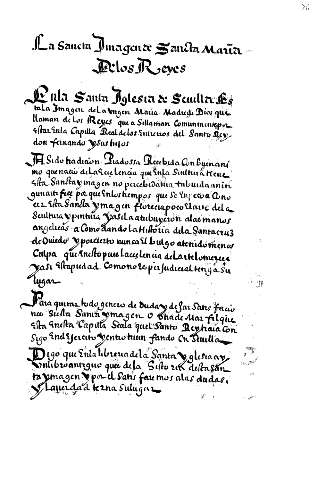 La Sancta Imagen de Sancta Maria
De los Reyes
En la Santa Iglesia de Sevilla Es
ta la Imagen de la Virgen Maria Madre de Dios que
llaman de los Reyes que a si llaman comunmente por
estar en la Capilla Real de los Entierros del Santo Rey
don fernando y sus hijos
A sido tradicion Piadossa Recebida con buen ani
mo que nacio de la Excelencia que en la Scultura tiene
esta Sancta ymagen no percebida ni atribuida a nin
gun artifice por que en los tiempos que se empeço a Cono
cer Esta Sancta ymagen florecia poco el arte de la
Scultura y pintura y asi la atribuyeron a las manos
angelicas a Como dando la historia de la Santa cruz
de Oviedo y por cierto nunca el bulgo a tenido menos
Culpa que en esto pues la excelencia de la
y asi esta piedad Como no te perjudicial tenga Su
lugar
Para quitar todo genero de duda y dejar Satis facion
Como Si esta Santa ymagen O
esta En esta Capilla Sea la que el Santo Rey traia Con
Sigo En el Exercito y entro triunfando En Sevilla
Digo que En la libreria de la Santa yglesia ay
Un libro antiguo que de la desta San
ta ymagen y por el Satis faremos a las dudas
y la verdad terna Su lugar